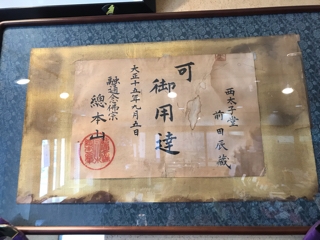 両太子堂
前田辰蔵
可
御用達
大正十五年九月五日
融通念佛宗
總本山